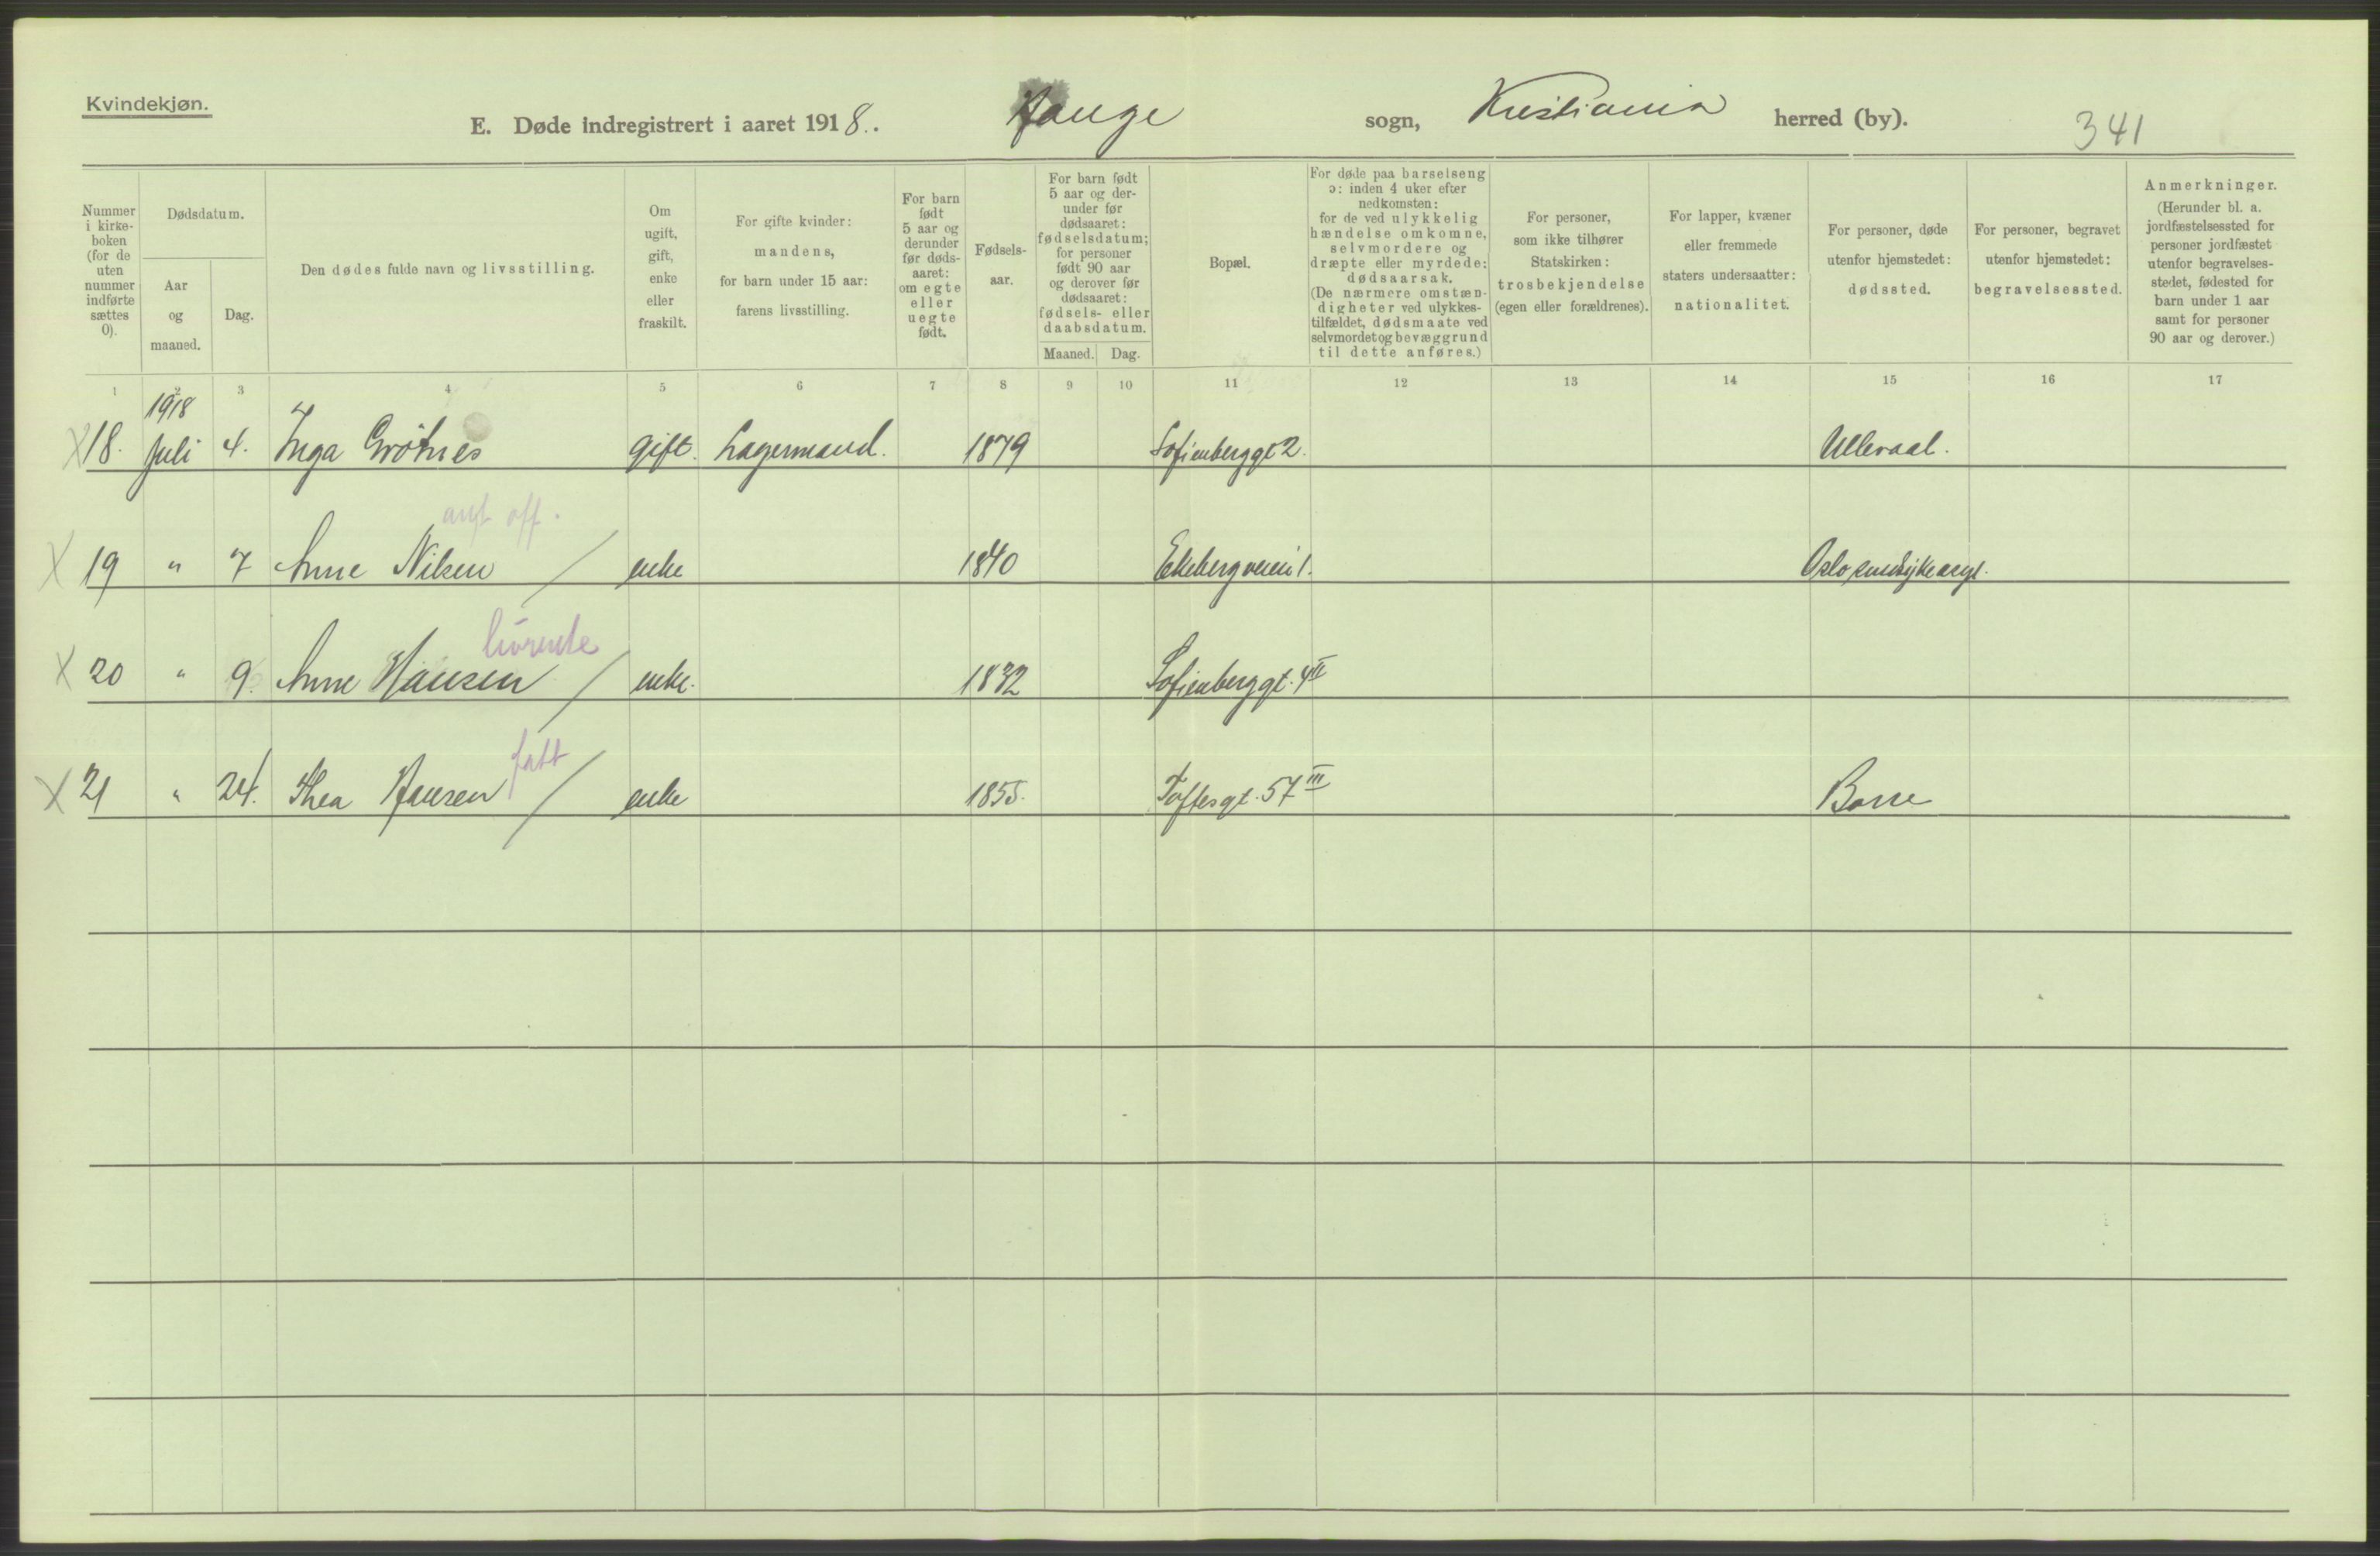 Kvindekjøn.
E. Døde indregistrert i aaret 1918. Hauge sogn, Kristiania herred (by). 341
Nummer i kirke-boken (for de uten nummer indførte sættes 0).
Dødsdatum.
Aar og maaned.
Dag.
Den dødes fulde navn og livsstilling.
Om ugift, gift, enke eller fraskilt.
For gifte kvinder: mandens, for barn under 15 aar: farens livsstilling.
For barn født 5 aar og derunder før døds-aaret: om egte eller uegte født.
Fødsels-aar.
For barn født 5 aar og der-under før dødsaaret: fødselsdatum; for personer født 90 aar og derover før dødsaaret: fødsels- eller daabsdatum.
Maaned. Dag.
Bopæl.
For døde paa barselseng ɔ: inden 4 uker efter nedkomsten: for de ved ulykkelig hændelse omkomne, selvmordere og dræpte eller myrdede: dødsaarsak. (De nærmere omstæn-digheter ved ulykkes-tilfældet, dødsmaate ved selvmordet og bevæggrund til dette anføres.)
For personer, som ikke tilhører Statskirken: trosbekjendelse (egen eller forældrenes).
For lapper, kvæner eller fremmede staters undersaatter: nationalitet.
For personer, døde utenfor hjemstedet: dødssted.
For personer, begravet utenfor hjemstedet: begravelsessted.
Anmerkninger. (Herunder bl. a. jordfæstelsessted for personer jordfæstet utenfor begravelses-stedet, fødested for barn under 1 aar samt for personer 90 aar og derover.)
1 2 3 4 5 6 7 8 9 10 11 12 13 14 15 16 17
1918
X 18. Juli 4. Inga Grötnes gift. Lagermand. 1879 Sofienberggt 2. Ullevaal.
off.
X 19 " 7 Anne Nilsen / enke 1840 Ekebergveien 1. Oslo sindsykeasyl.
X 20 " 9. Anne Hansen / enke. 1832 Sofienberggt. 4 II
fatt
X 21 " 24. Thea Hansen / enke 1855. Toftesgt. 57 III Borre